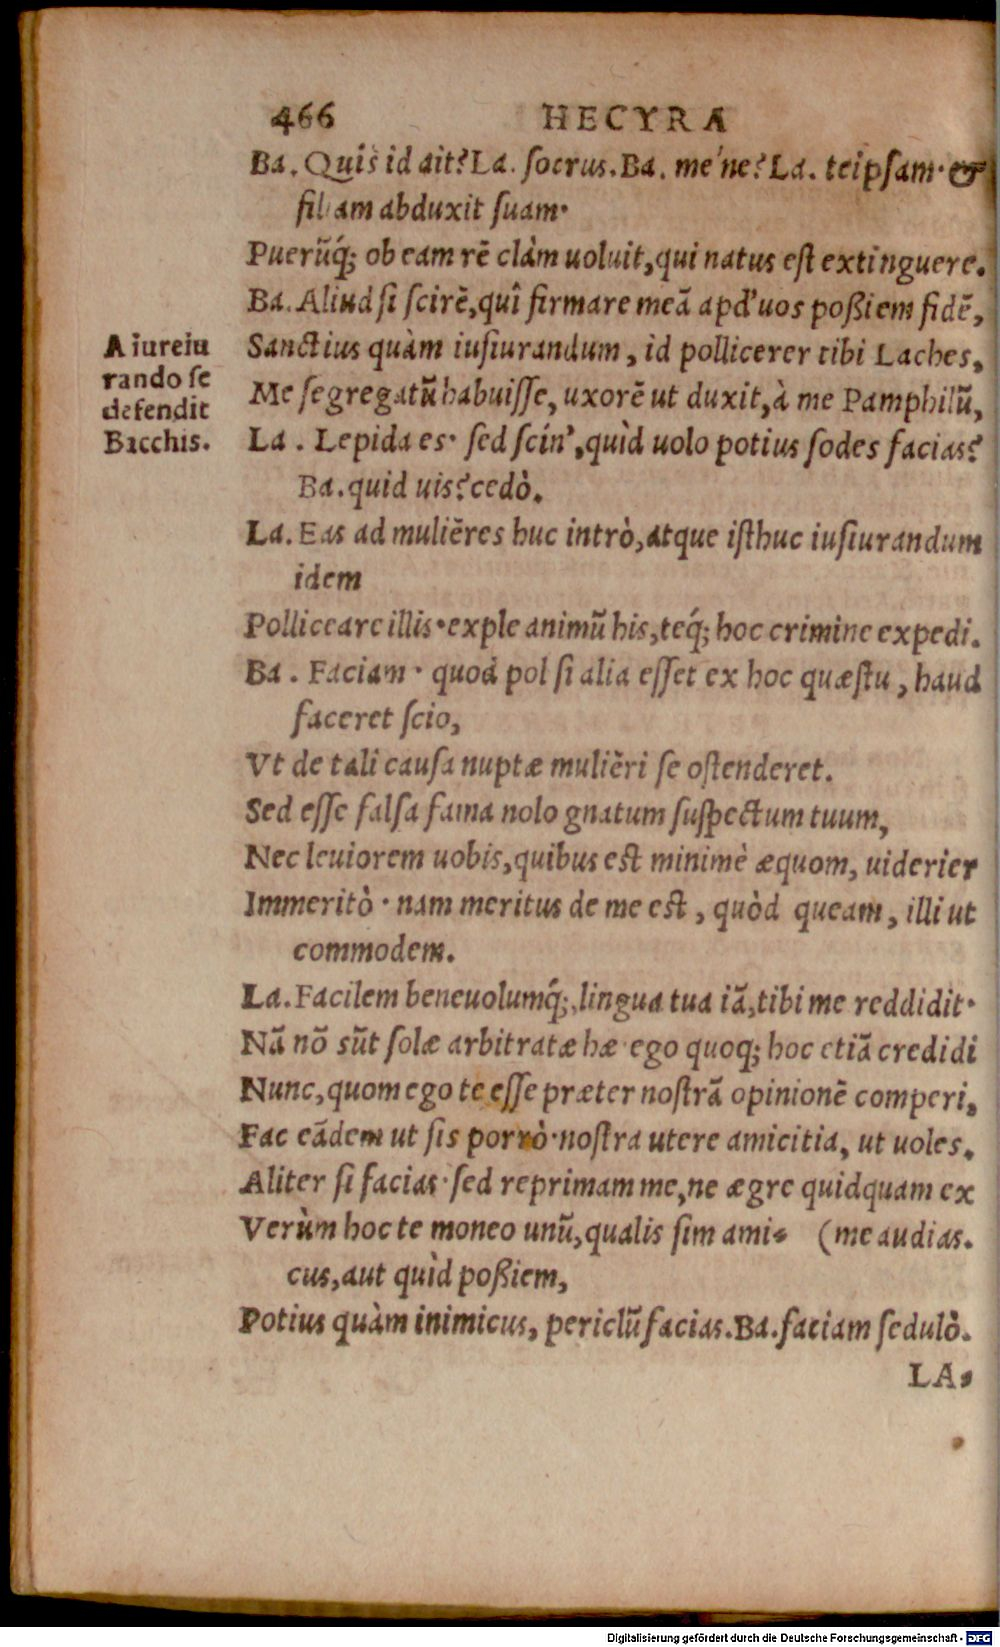 466 HECYRA
Ba. Quis id ait? La. socrus. Ba. me'ne? La. teipsam. &
filiam abduxit suam.
Puerũq́; ob eam rẽ clàm uoluit, qui natus est extinguere.
Ba. Aliud si scirẽ, quî firmare meã apd' uos poßiem fidẽ,
Sanctius quàm iusiurandum, id pollicerer tibi Laches,
Me segregatũ habuisse, uxorẽ ut duxit, à me Pamphilũ,
La. Lepida es. sed scin', quid uolo potius sodes facias?
Ba. quid uis? cedò.
La. Eas ad muliẽres huc intrò, atque isthuc iusiurandum
idem
Polliceare illis. exple animũ his, teq́; hoc crimine expedi.
Ba. Faciam. quod pol si alia esset ex hoc quæstu, haud
faceret scio,
Vt de tali causa nuptæ muliẽri se ostenderet.
Sed esse falsa fama nolo gnatum suspectum tuum,
Nec leuiorem uobis, quibus est minimè æquom, uiderier
Immeritò. nam meritus de me est, quòd queam, illi ut
commodem.
La. Facilem beneuolumq́;, lingua tua iã, tibi me reddidit.
Nã nõ sũt solæ arbitratæ hæ. ego quoq; hoc etiã credidi
Nunc, quom ego te esse præter nostrã opinionẽ comperi,
Fac eãdem ut sis porrò. nostra utere amicitia, ut uoles.
Aliter si facias. sed reprimam me, ne ægre quidquam ex
Verùm hoc te moneo unũ, qualis sim ami- (me audias.
cus, aut quìd poßiem,
Potius quàm inimicus, periclũ facias. Ba. faciam sedulò.
LA-
A iureiu
rando se
defendit
Bacchis.
Digitalisierung gefördert durch die Deutsche Forschungsgemeinschaft - DFG